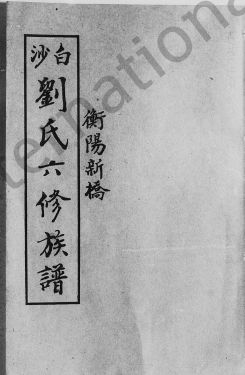 衡陽新橋
白沙
劉氏六修族譜
international